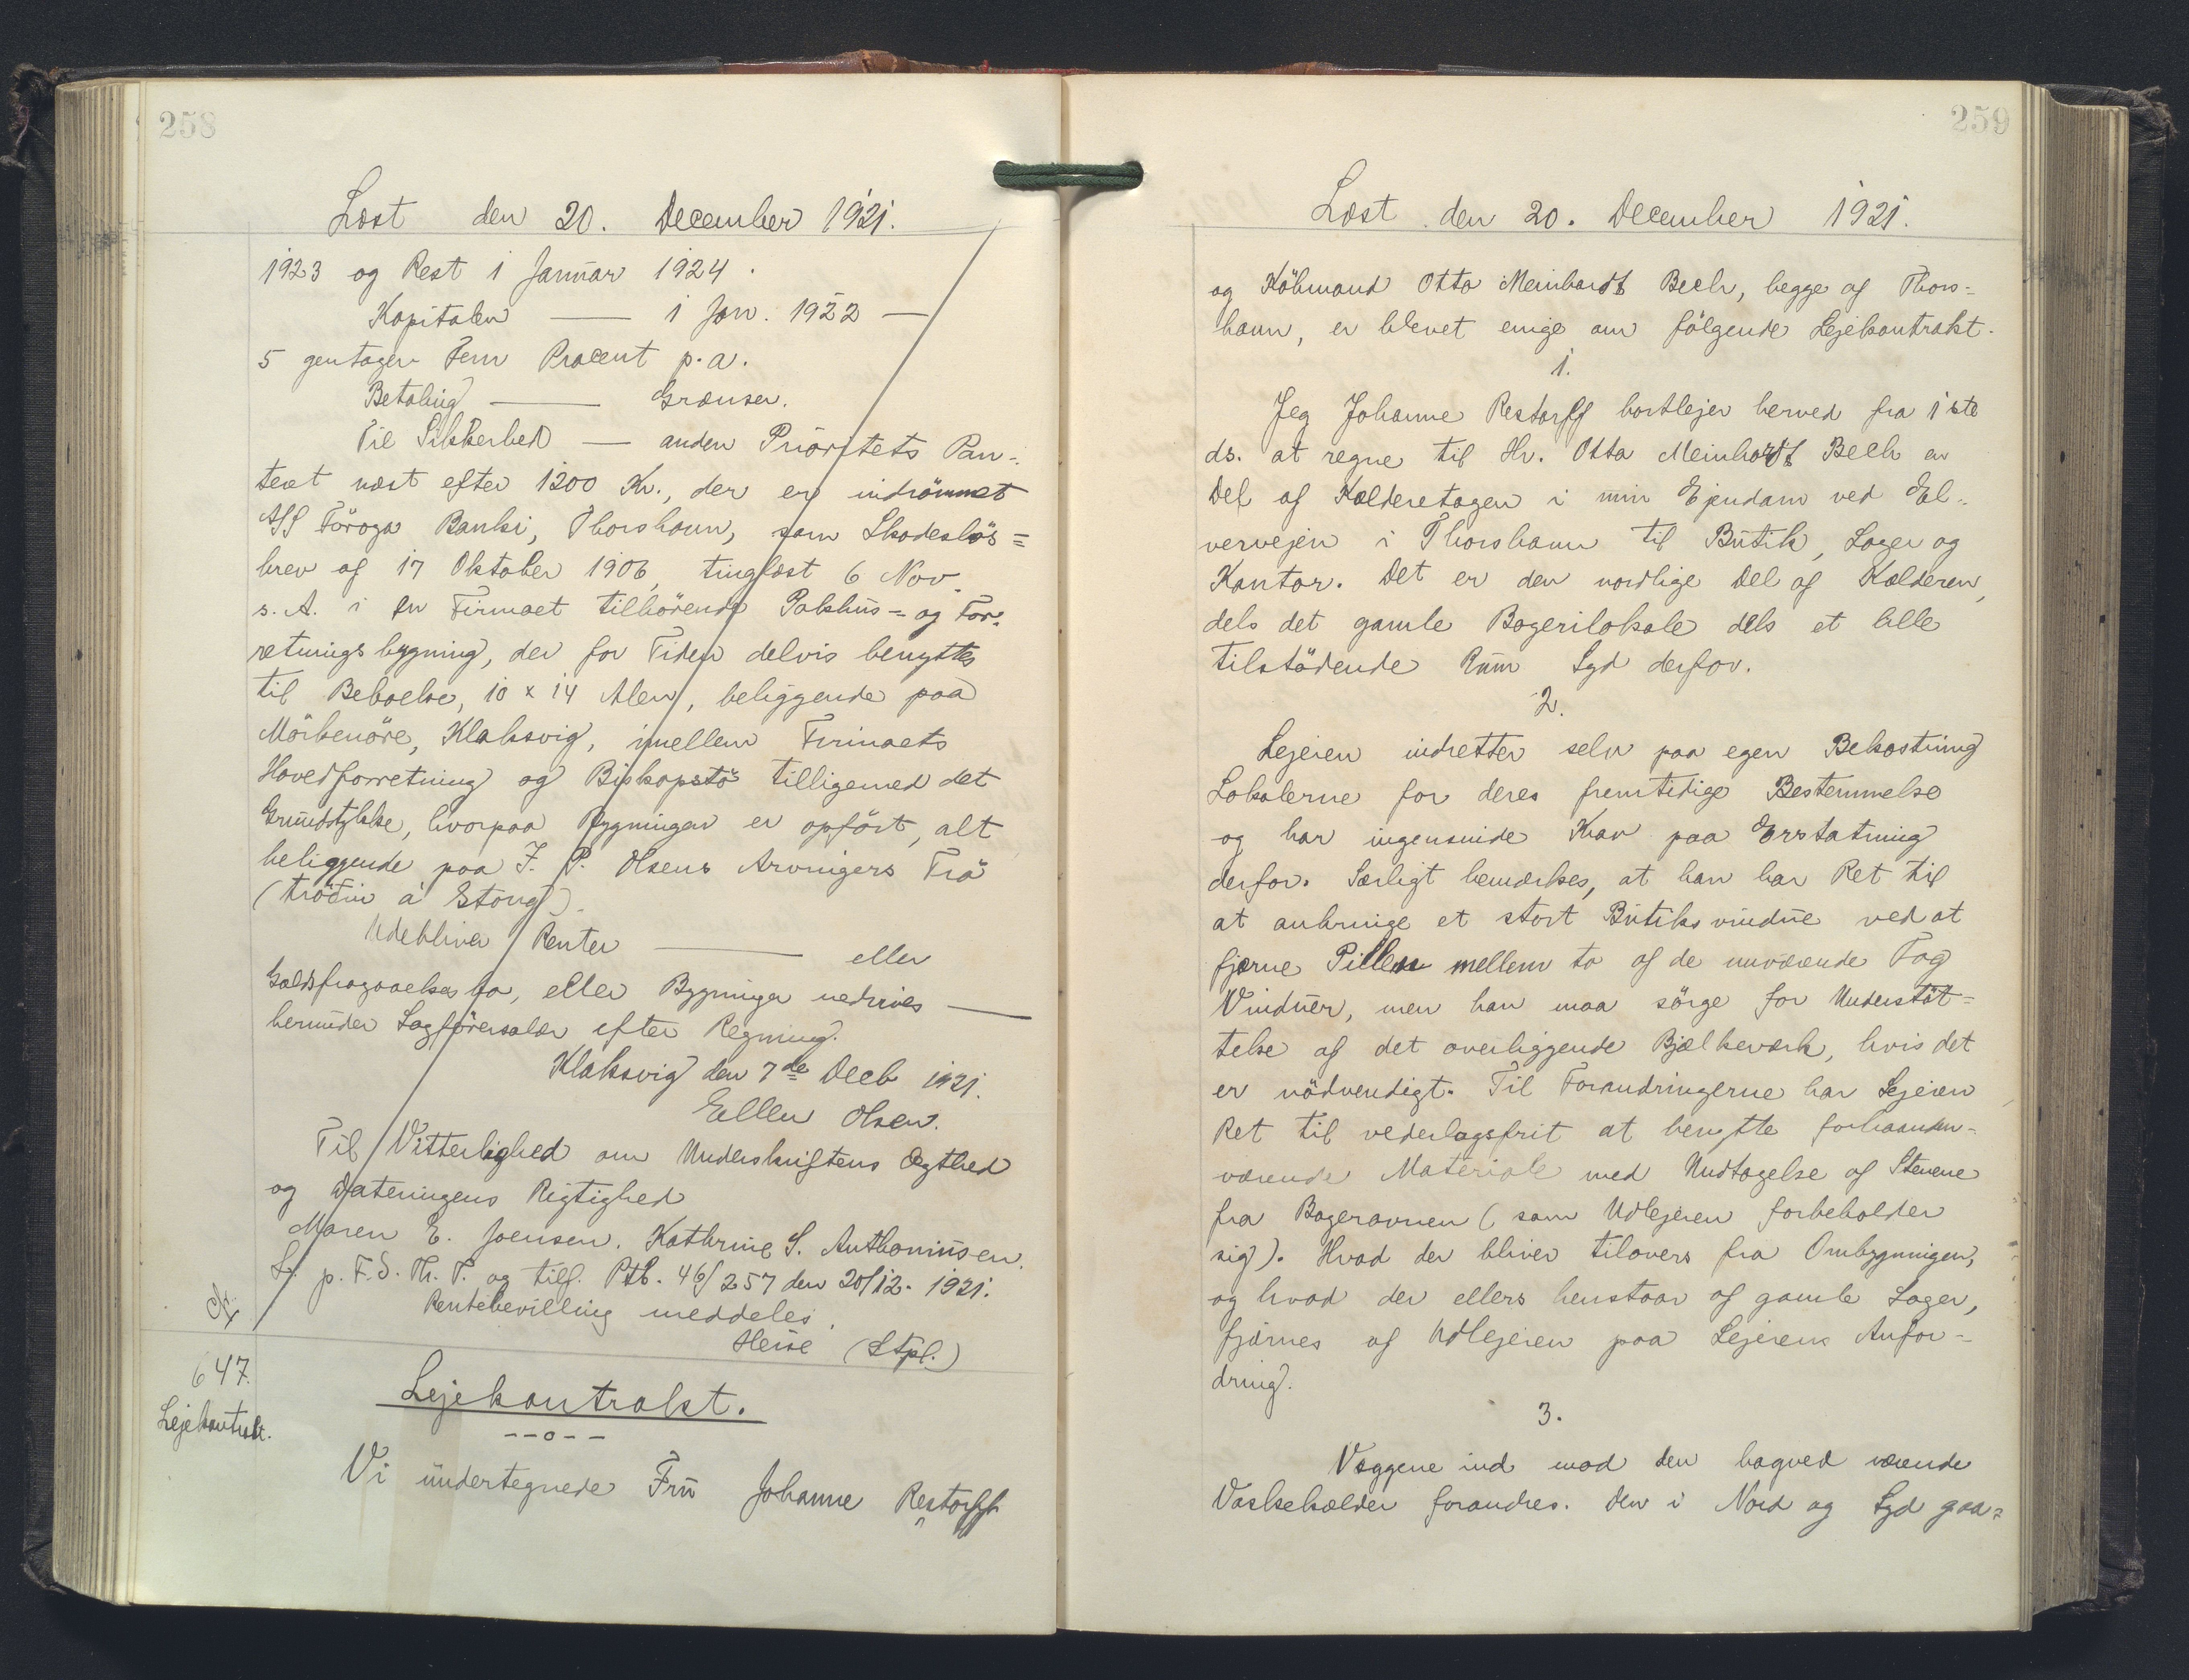 258
Læst den 20. December 1921.
1923 og Rest i Januar 1924.
Kapitalen — 1 Jan. 1922 —
5 gentager Fem Procent p.a.
Betaling — Grænser.
Til Sikkerhed — anden Prioritets Pan-
teret næst efter 1200 Kr., der er indrömmet
A/S Föroya Banki, Thorshavn, som Skadeslös=
brev af 17 Oktober 1906, tinglæst 6 Nov.
s. A. i en Firmaet tilhörende Pakhus= og For=
retningsbygning, der for Tiden delvis benyttes
til Beboelse, 10 x 14 Alen, beliggende paa
Mörkenöre, Klaksvig, imellem Firmaets
Hovedforretning og Biskopstö tilligemed det
Grundstykke, hvorpaa Bygningen er opfört, alt
beliggende paa J. P. Olsens Arvingers Trö
(tröðni á Stong).
Udebliver Renter — eller
Gældsfragaaelsesbo, eller Bygninger nedrives —
herunder Sagförersalær efter Regning.
Klaksvig den 7de Decb 1921.
Ellen Olsen.
Til Vitterlighed om Underskriftens Ægthed
og Dateringens Rigtighed
Maren E. Joensen. Kathrine S. Anthoniusen.
L. p. F.S. Th. T. og tilf. Ptb. 46/257 den 20/12. 1921.
Rentebevilling meddeles.
Heise (Stpl.)
647.
Lejekontrakt.
Lejekontrakt.
--o--
Vi undertegnede Fru Johanne Restorff
259
Læst den 20. December 1921.
og Köbmand Otto Meinhardt Bech, begge af Thors-
havn, er blevet enige om fölgende Lejekontrakt.
1.
Jeg Johanne Restorff bortlejer herved fra 1ste
ds. at regne til Hr. Otto Meinhardt Bech en
Del af Kælderetagen i min Ejendom ved Eel-
vervejen i Thorshavn til Butik, Lager og
Kontor. Det er den nordlige Del af Kælderen,
dels det gamle Bagerilokale dels et lille
tilstödende Rum Syd derfor.
2.
Lejeren indretter selv paa egen Bekostning
Lokalerne for deres fremtidige Bestemmelse
og har ingensinde Krav paa Erstatning
derfor. Særligt bemærkes, at han har Ret til
at anbringe et stort Butiksvindue ved at
fjærne Pillen mellem to af de nuværende Fag
Vinduer, men han maa sörge for Understöt-
telse af det overliggende Bjælkeværk, hvis det
er nödvendigt. Til Forandringerne har Lejeren
Ret til vederlagsfrit at benytte forhaanden-
værende Materiale med Undtagelse af Stenene
fra Bagerovnen (som Udlejeren forbeholder
sig). Hvad der bliver tilovers fra Ombygningen,
og hvad der ellers henstaar af gamle Sager,
fjærnes af Udlejeren paa Lejerens Anfor-
dring.
3.
Væggene ind mod den bagved værende
Vaskekælder forandres. Den i Nord og Syd gaa=